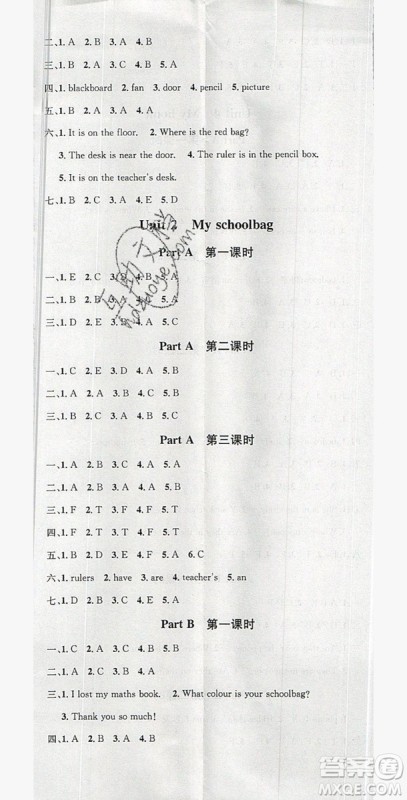 二、1. A 2. B 3. A 4. B
三、1. C 2. E 3. D 4. B 5. A
四、1. blackboard 2. fan 3. door 4. pencil 5. picture
五、1. A 2. B 3. A 4. B 5. A
六、1. It is on the floor. 2. Where is the red bag?
3. The desk is near the door. 4. The ruler is in the pencil box.
5. It is on the teacher's desk.
七、1. B 2. C 3. A 4. E 5. D
Unit 2 My schoolbag
Part A 第一课时
一、1. E 2. C 3. D 4. B 5. A
二、1. C 2. B 3. C 4. A 5. A
三、1. B 2. E 3. D 4. A 5. C
Part A 第二课时
一、1. C 2. E 3. D 4. A 5. B
二、1. B 2. C 3. A 4. B 5. A
三、1. B 2. B 3. C 4. A 5. C
Part A 第三课时
一、1. A 2. B 3. C 4. A 5. A
二、1. A 2. B 3. C 4. A 5. A
三、1. F 2. T 3. F 4. F 5. T
四、1. F 2. T 3. T 4. F 5. T
五、1. B 2. D 3. E 4. F 5. A 6. C
六、1. rulers 2. have 3. are 4. teacher's 5. an
七、1. B 2. D 3. C 4. E 5. A
Part B 第一课时
一、1. C 2. A 3. B 4. C 5. C
二、1. A 2. A 3. C 4. B 5. A
三、1. I lost my maths book. 2. What colour is your schoolbag?
3. Thank you so much!
四、1. A 2. B 3. A 4. A 5. B
答案圈
MXQE.COM